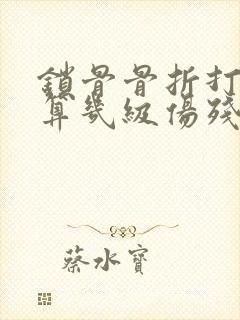 鎖骨骨折打
算幾級傷殘
蔡水寶